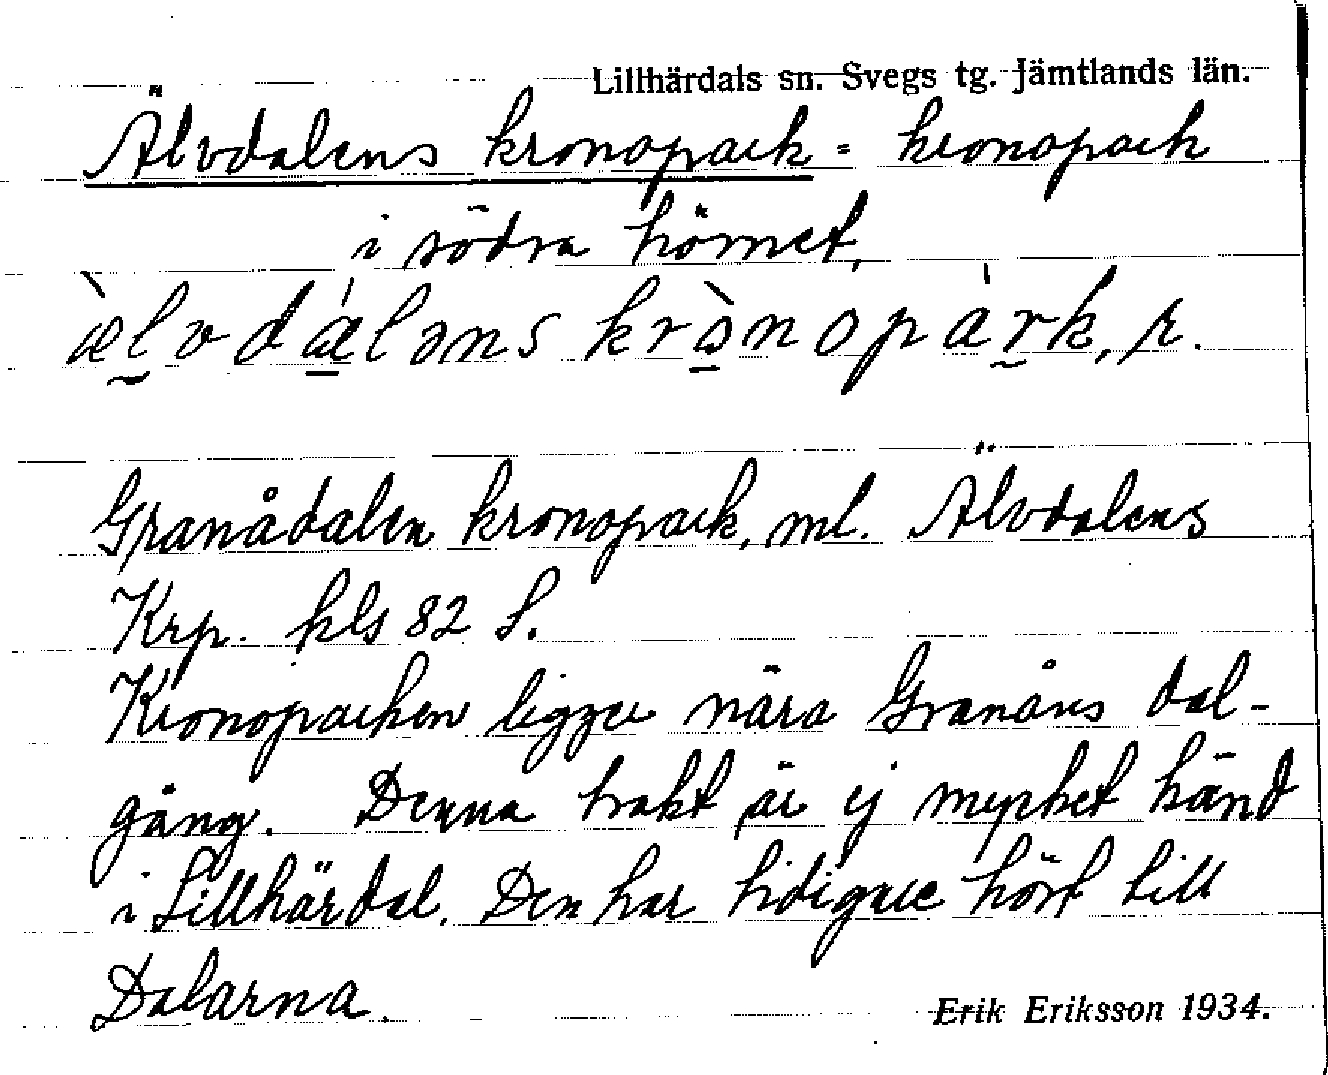 Lillhärdals sn. Svegs tg. Jämtlands län.
Älvdalens kronopark = kronopark
i södra hörnet,
æ̀lvdæ̀lǝns krònopàrk, r.
Granådalen kronopark, ml. Älvdalens
Krp. hls 82 S.
Kronoparken ligger nära Granåns dal-
gång. Denna trakt är ej mycket känd
i Lillhärdal. Den har tidigare hört till
Dalarna.
Erik Eriksson 1934.